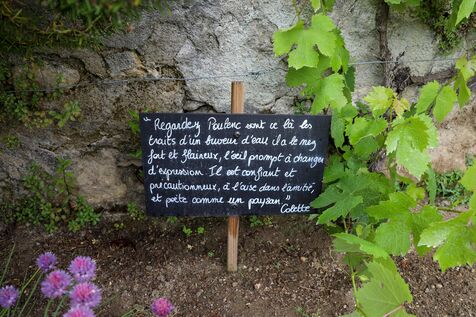 " Regardez Poulenc sont ce là les
traits d'un buveur d'eau il a le nez
fort et flaireur, l'œil prompt à changer
d'expression. Il est confiant et
precautionneux, à l'aise dans l'amitié,
et poète comme un paysan "
Colette